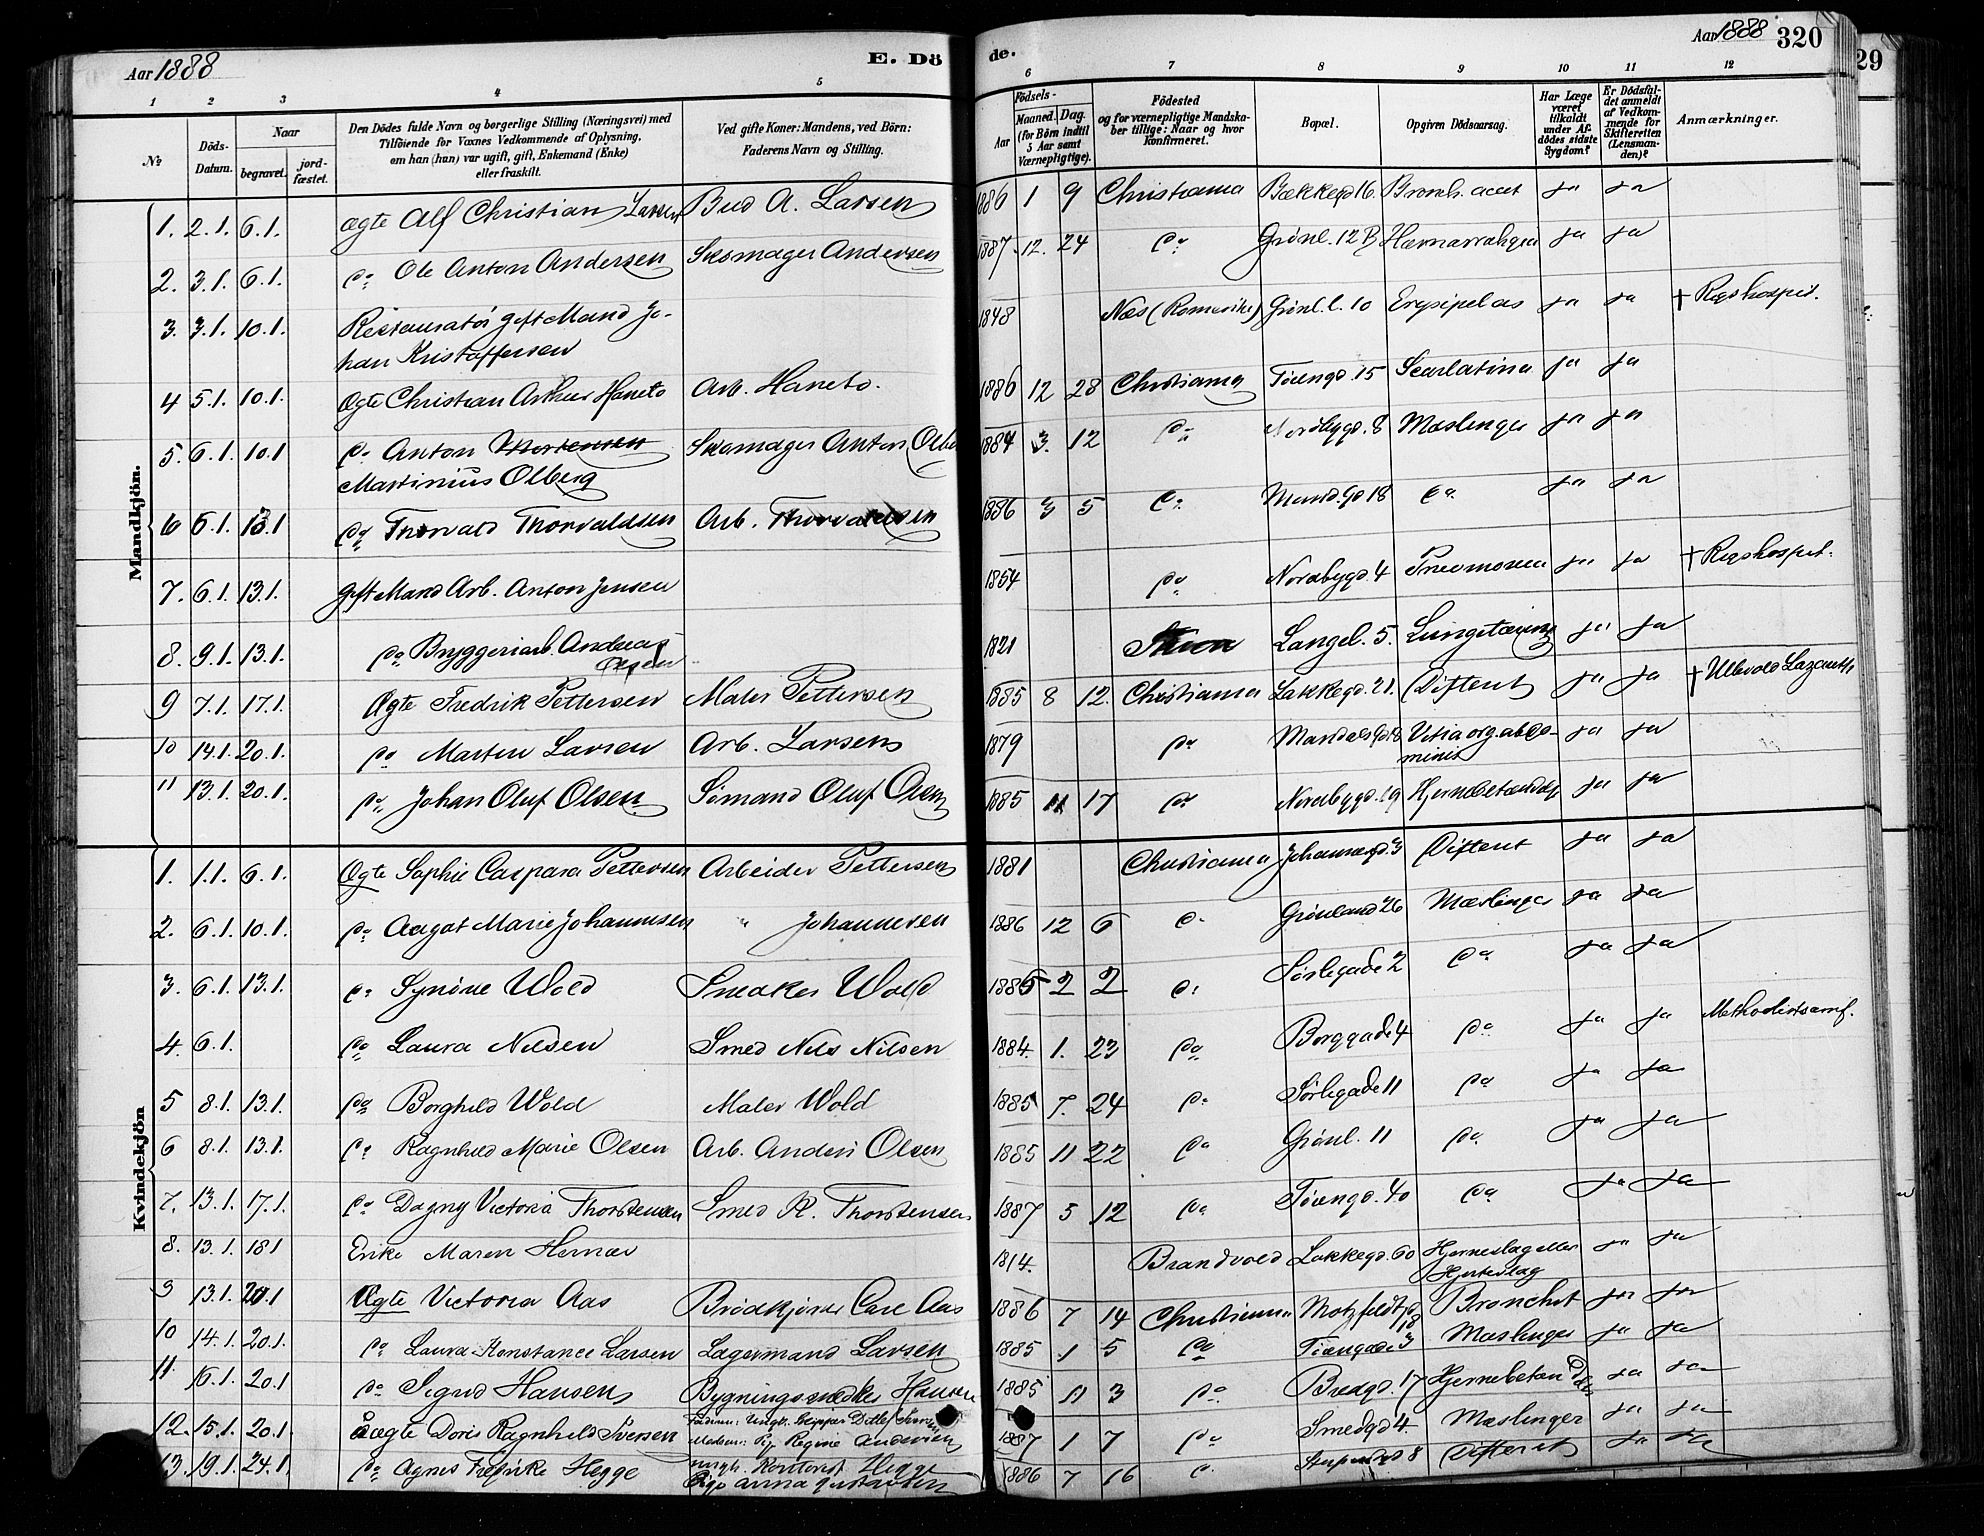 Aar 1888
E. Dö
de.
Aar 1888
320
29
1 2 3 4 5 6 7 8 9 10 11 12
№
Döds-Datum.
Naar
begravet.
jord-fæstet.
Den Dödes fulde Navn og borgerlige Stilling (Næringsvei) med
Tilföiende for Voxnes Vedkommende af Oplysning,
om han (hun) var ugift, gift, Enkemand (Enke)
eller fraskilt.
Ved gifte Koner: Mandens, ved Börn:
Faderens Navn og Stilling.
Födsels-
Aar
Maaned. Dag.
(for Börn indtil
5 Aar samt
Værnepligtige).
Födested
og for værnepligtige Mandska-
ber tillige: Naar og hvor
Konfirmeret.
Bopæl.
Opgiven Dödsaarsag.
Har Læge
været
tilkaldt
under Af-
dödes sidste
Sygdom?
Er Dödsfal-
det anmeldt
af Vedkom-
mende for
Skifteretten
(Lensman-
den)?
Anmærkninger.
Mandkjön.
1. 2.1. 6.1. ægte Alf Christian Larsen Bud A. Larsen 1886 1 9 Christiania Bækkegd 16. Bronch. acut ja ja
2. 3.1. 6.1. do Ole Anton Andersen Skomager Andersen 1887. 12. 24 do Grönl. 12 B ja ja
3. 3.1. 10.1. Restauratör gift Mand Jo-
han Kristoffersen 1848 Næs (Romerike) Grönl. l. 10 Erysipelas ja ja † Rigshospit.
4 5.1. 10.1. Ægte Christian Arthur Haneto Arb. Haneto. 1886 12 28 Christiania Töiengd. 15 Scarlatina ja ja
5. 6.1. 10.1 do Anton Mortensen Skomager Anton Olberg 1884 3. 12 do Nordbygd. 8 Mæslinger ja ja
Martinius Olberg
6 6.1. 13.1 do Thorvald Thorvaldsen Arb. Thorvaldsen 1886 3 5 do Mand. Gd 18 do ja ja
7. 6.1. 13.1. gift Mand Arb. Anton Jensen 1854 do Nordbygd 4 Pnevmonia ja ja † Rigshospit.
8. 9.1. 13.1. do Bryggeriarb. Andreas
Olsen 1821 Langel. 5. Lungetæring ja ja
9 7.1. 17.1. Ægte Fredrik Pettersen Maler Pettersen 1885 8 12. Christiania Lakkegd. 21. Difterit ja ja † Ullevold Lazareth
10 14.1. 20.1. do Martin Larsen Arb. Larsen 1879 do Mandals Gd 18 Vitia org. abdo-
minis ja ja
11 13.1. 20.1. do Johan Oluf Olsen Sömand Oluf Olsen 1885 11 17 do Nordbygd. 19 ja ja
Kvindekjön
1. 1.1. 6.1. Ægte Sophie Caspara Pettersen Arbeider Pettersen 1881 Christiania Johannesgd. 3 Difterit ja ja
2. 6.1. 10.1. do Aagot Marie Johannesen " Johannesen 1886 12 6 do Grönland 26 Mæslinger ja ja
3. 6.1. 13.1. do Synöve Wold Snedker Wold 1885 2 2 do Sörligade 2 do ja ja
4. 6.1. do Laura Nilsen Smed Nils Nilsen 1884. 1. 23 do Borggade 4 do ja ja Methodistsamf.
5 8.1. 13.1. do Borghild Wold Maler Wold 1885 7. 24 do Sörligade 11 do ja ja
6 8.1. 13.1. do Ragnhild Marie Olsen Arb. Anders Olsen 1885 11 22 do Grönl. 11 do ja ja
7. 13.1. 17.1. do Dagny Victoria Thorstensen Smed R. Thorstensen 1887 5 12 do Töiengd. 40 do ja ja
8. 13.1. 18.1 Enke Maren 1814. Brandvold Lakkegd. 60 Hjerneslag eller
Hjerteslag ja ja
9 13.1. 20.1 Ægte Victoria Aas Brödkjörer Carl Aas 1886 7 14 Christiania Motzfeldtgd.
18 Bronchit ja ja
10 14.1. 20.1. do Laura Konstance Larsen Lagermand Larsen 1885 1 5 do Töiengade 3 Mæslinger ja ja
11 16.1. 20.1 do Sigrid Hansen Bygningssnedker Hansen 1885 11 3 do Bredgd. 17 ja ja
12. 15.1. 20.1 Uægte Doris Ragnhild Iversen Faderen: Ungk. Skipper Ditlef Iversen
Moderen: Pig. Regine Andersen 1887 1 7 do Smedgd 4. Mæslinger ja ja
13. 19.1. 24.1. do Agnes Fredrike Hegge Ungk. Hegge
Pige Anna Gustavsen 1886 7 16 do 8 Difterit ja ja